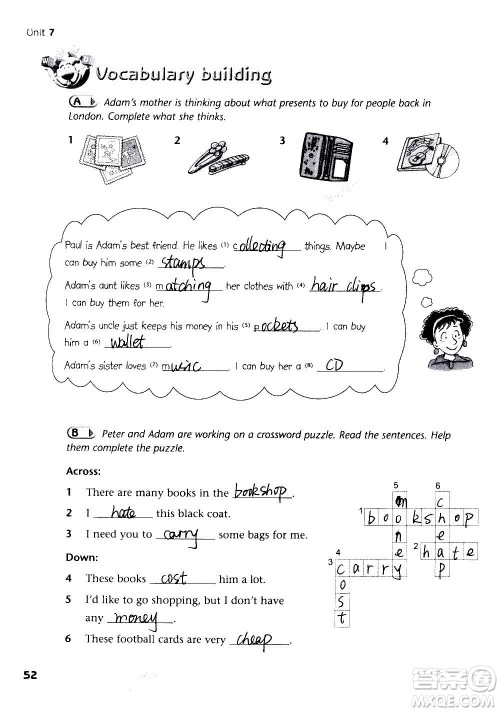 Unit 7
Vocabulary building
A Adam's mother is thinking about what presents to buy for people back in
London. Complete what she thinks.
1 2 3 4
Paul is Adam's best friend. He likes (1) collecting things. Maybe I
can buy him some (2) stamps.
Adam's aunt likes (3) matching her clothes with (4) hair clips.
I can buy them for her.
Adam's uncle just keeps his money in his (5) pockets. I can buy
him a (6) wallet.
Adam's sister loves (7) music. I can buy her a (8) CD.
B Peter and Adam are working on a crossword puzzle. Read the sentences. Help
them complete the puzzle.
Across:
1 There are many books in the bookshop.
2 I hate this black coat.
3 I need you to carry some bags for me.
Down:
4 These books cost him a lot.
5 I'd like to go shopping, but I don't have
any money.
6 These football cards are very cheap.
5 6
m c
1 bookshop
n e
2 hate
4
3 carry p
o
s
t
52
作业精灵
MXQE.COM